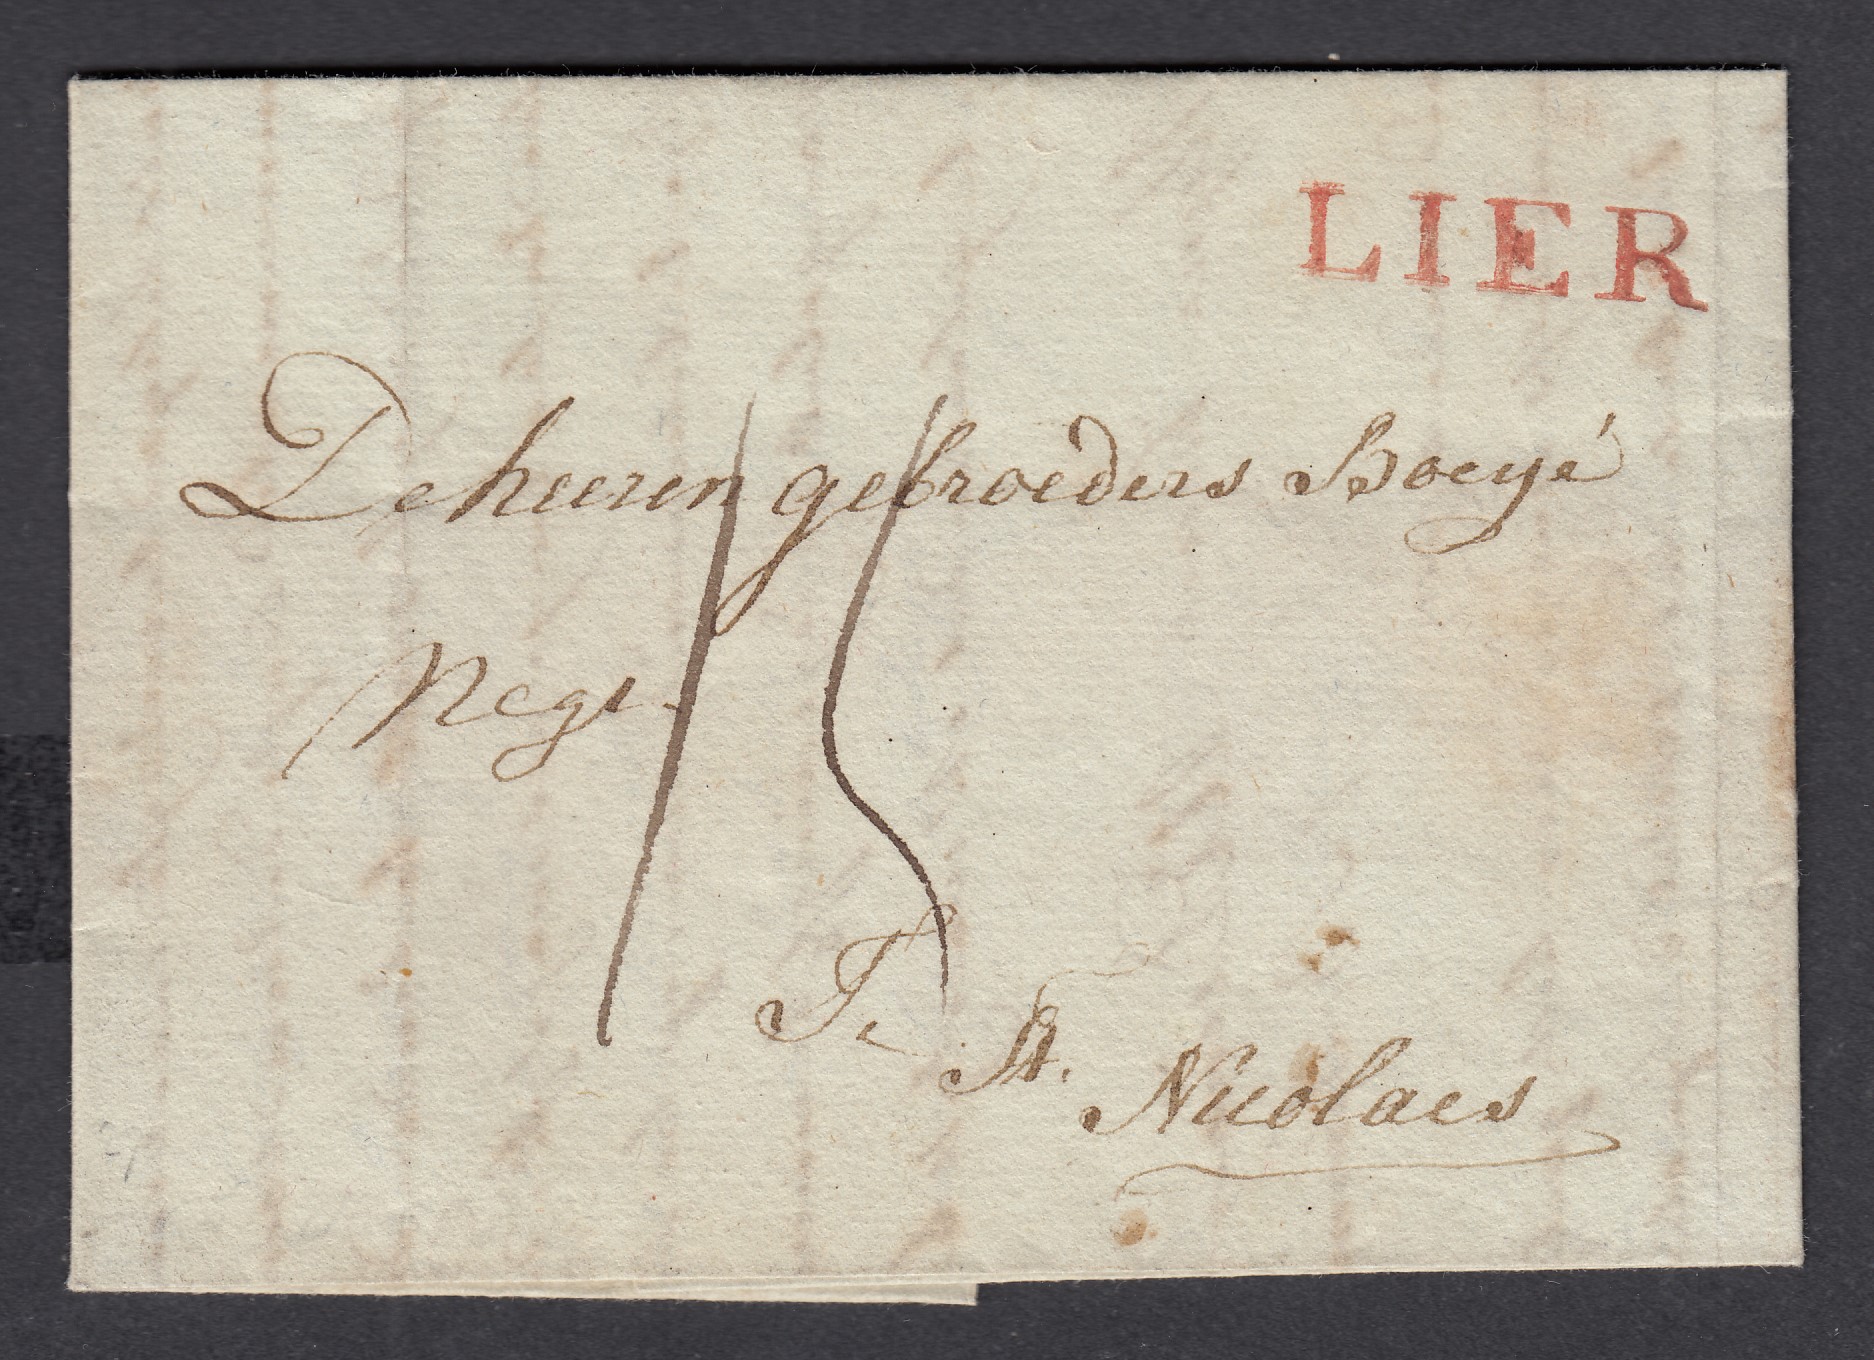 LIER
De heeren gebroeders Boeyé
Negt.
15
Te
St.
Nicolaes